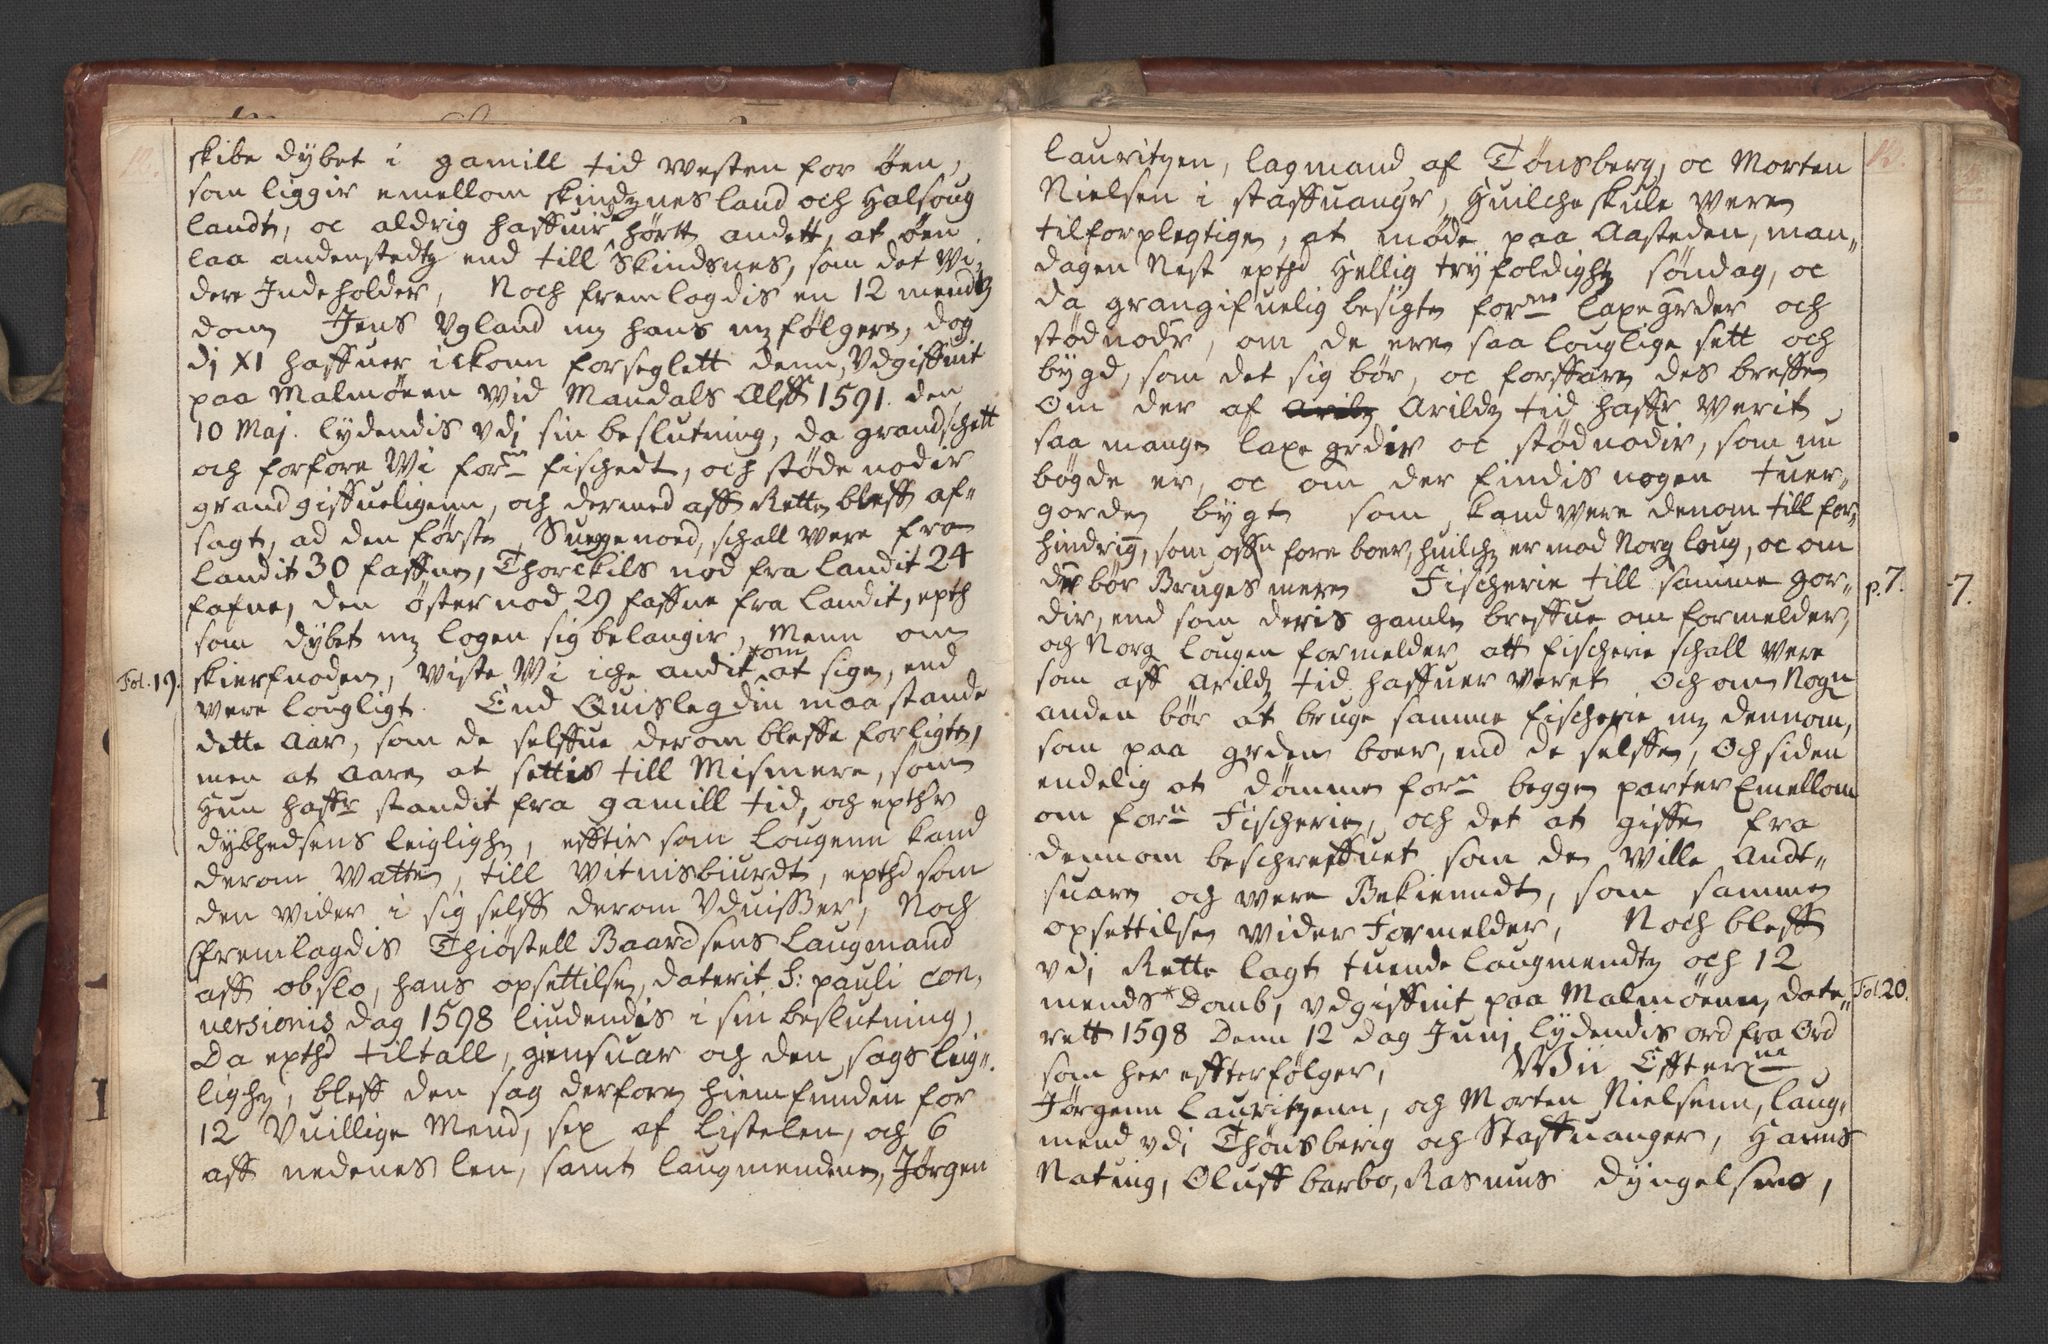 skibe dybet i gamill tid Westen for öen,
som liggir emellom skindznes land och Halsoug
landt, oc aldrig haffuir hörtt andett, at öen
laa andenstedtz end till Skindsnes, som det Wi-
dere Indeholder, Noch fremlagdis en 12 mendtz
dom Jens Vgland mz hans mz fölgere, dog
dj XI haffuer ickonn forseglett denn, Vdgiffuit
paa Malmöenn Wid Mandals Elff 1591. den
10 Maj. lydendis vdj sin beslutning, da grandschett
och forfore Wi forne fischedt, och stöde nodir
grandgiffueligenn, och dermed aff Rette bleff af-
sagt, ad den förste, Suegenoed, schall Were fra
landit 30 faffne, Thorckils nod fra landit 24
fafne, den öster nod 29 faffne fra landit, epth
som dybet mz logen sig belangir, Menn om
Fol. 19. skierfnoden, Wiste Wi iche andit *om at sige, end
Were lougligt. End Quislegdin maa stande
dette Aar, som de selffue derom bleffe forligte,
men at Aare at settis till Mismere, som
Hun haffr standit fra gamill tid, och epthr
dybhedsens leiglighz, efftir som Lougenn kand
derom Watte, till Witnisbiurdt, epthd som
den Wider i sig selff derom Vduisser, Noch
fremlagdis Thiostell Baardsens Laugmand
aff obslo, hans opsettilse, daterit S: pauli con-
versionis dag 1598 liudendis i sin beslutning,
Da epthd tiltall, giensuar och den sags leig-
lighz, bleff den sag derfore hiemfunden for
12 Vuillige Mend, sex af Listelen, och 6
aff nedenes len, samt laugmendene, Jörgen
Lauritzen, lagmand af Tönsberg, oc Morten
Nielsen i staffuangr, Huilche skule Were
tilforplegtige, at möde paa Aasteden, man-
dagen Nest epthd Hellig tryfoldighz söndag, oc
da grangifuelig besigte forne laxegrder och
stödnodr, om de ere saa louglige sett och
bygd, som det sig bör, oc forffare des breffe
Om der af Arildz tid haffr Werit
saa mange laxe grdir oc stödnodir, som nu
bögde er, oc om der findis nogen tuer-
gorder bygt som kand Were denom till for-
hindring, som offn fore boer, huilchz er mod Norg Loug, oc om
p. 7. 7. der bör Bruges mere Fischerie till samme gor-
dir, end som deris gamle breffue om formelder,
och Norg Lougen formelder att fischerie schall Were
som aff Arildz tid haffuer Weret Och om Nogn
anden bör at bruge samme fischerie mz dennom,
som paa grden boer, end de selffe, Och siden
endelig at dömme forn begge parter Emellom
om forn Fischerie, och det at giffe fra
dennom beschreffuet som de Wille Andt-
suare och Were Bekienndt, som samme
opsettilse Wider Formelder, Noch bleff
vdj Rette lagt tuende Laugmendtz och 12
mends* Domb, Vdgiffuit paa Malmöenn, date- Fol. 20.
rett 1598 Denn 12 dag Junj lydendis ord fra Ord
som her effterfölger, Wii Efftersne
Jörgenn Lauritzenn, och Morten Nielsenn, laug-
mend vdj Thönsberig och Staffuanger, Hanns
Nating, Oluff barbo, Rasmus Dyngelsnes,